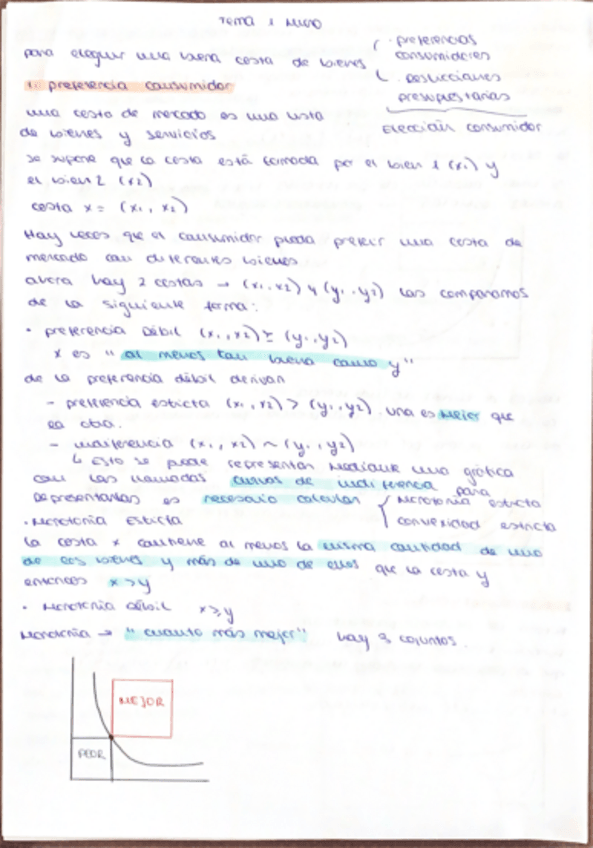 Tema 1 Micro
para elegir una buena cesta de bienes
· preferencias consumidores
· restricciones presupuestarias
Elección consumidor
1. preferencia consumidor
una cesta de mercado es una lista
de bienes y servicios
se supone que la cesta está formada por el bien 1 (x₁) y
el bien 2 (x₂)
cesta x = (x₁, x₂)
Hay veces que el consumidor pueda preferir una cesta de
mercado con diferentes bienes
ahora hay 2 cestas → (x₁, x₂) y (y₁, y₂) las comparamos
de la siguiente forma:
· preferencia Débil (x₁, x₂) ≿ (y₁, y₂)
x es "al menos tan buena como y"
de la preferencia débil derivan
- preferencia estricta (x₁, x₂) > (y₁, y₂) una es mejor que
la otra.
- indiferencia (x₁, x₂) ~ (y₁, y₂)
↳ Esto se puede representar mediante una gráfica
con las llamadas curvas de indiferencia para
representarlas es necesario calcular
Monotonía estricta
convexidad estricta
· Monotonía Estricta
la cesta x contiene al menos la misma cantidad de uno
de los bienes y más de uno de ellos que la cesta y
entonces x > y
· Monotonía débil x ≥ y
Monotonía → "cuanto más mejor" hay 3 conjuntos.
MEJOR
PEOR